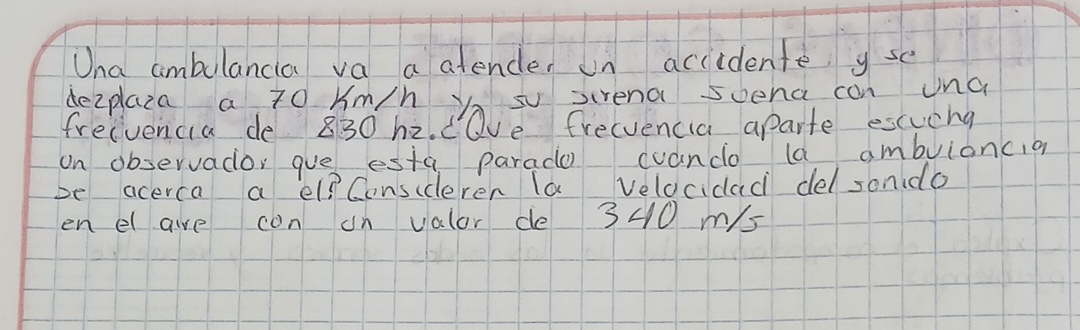 Una ambulancia va a atender un accidente y se
dezplaza a 70 Km/h y su sirena suena con una
frecuencia de 830 hz. ¿Que frecuencia aparte escucha
un observador que esta parado cuando la ambulancia
se acerca a el? Consideren la velocidad del sonido
en el aire con un valor de 340 m/s